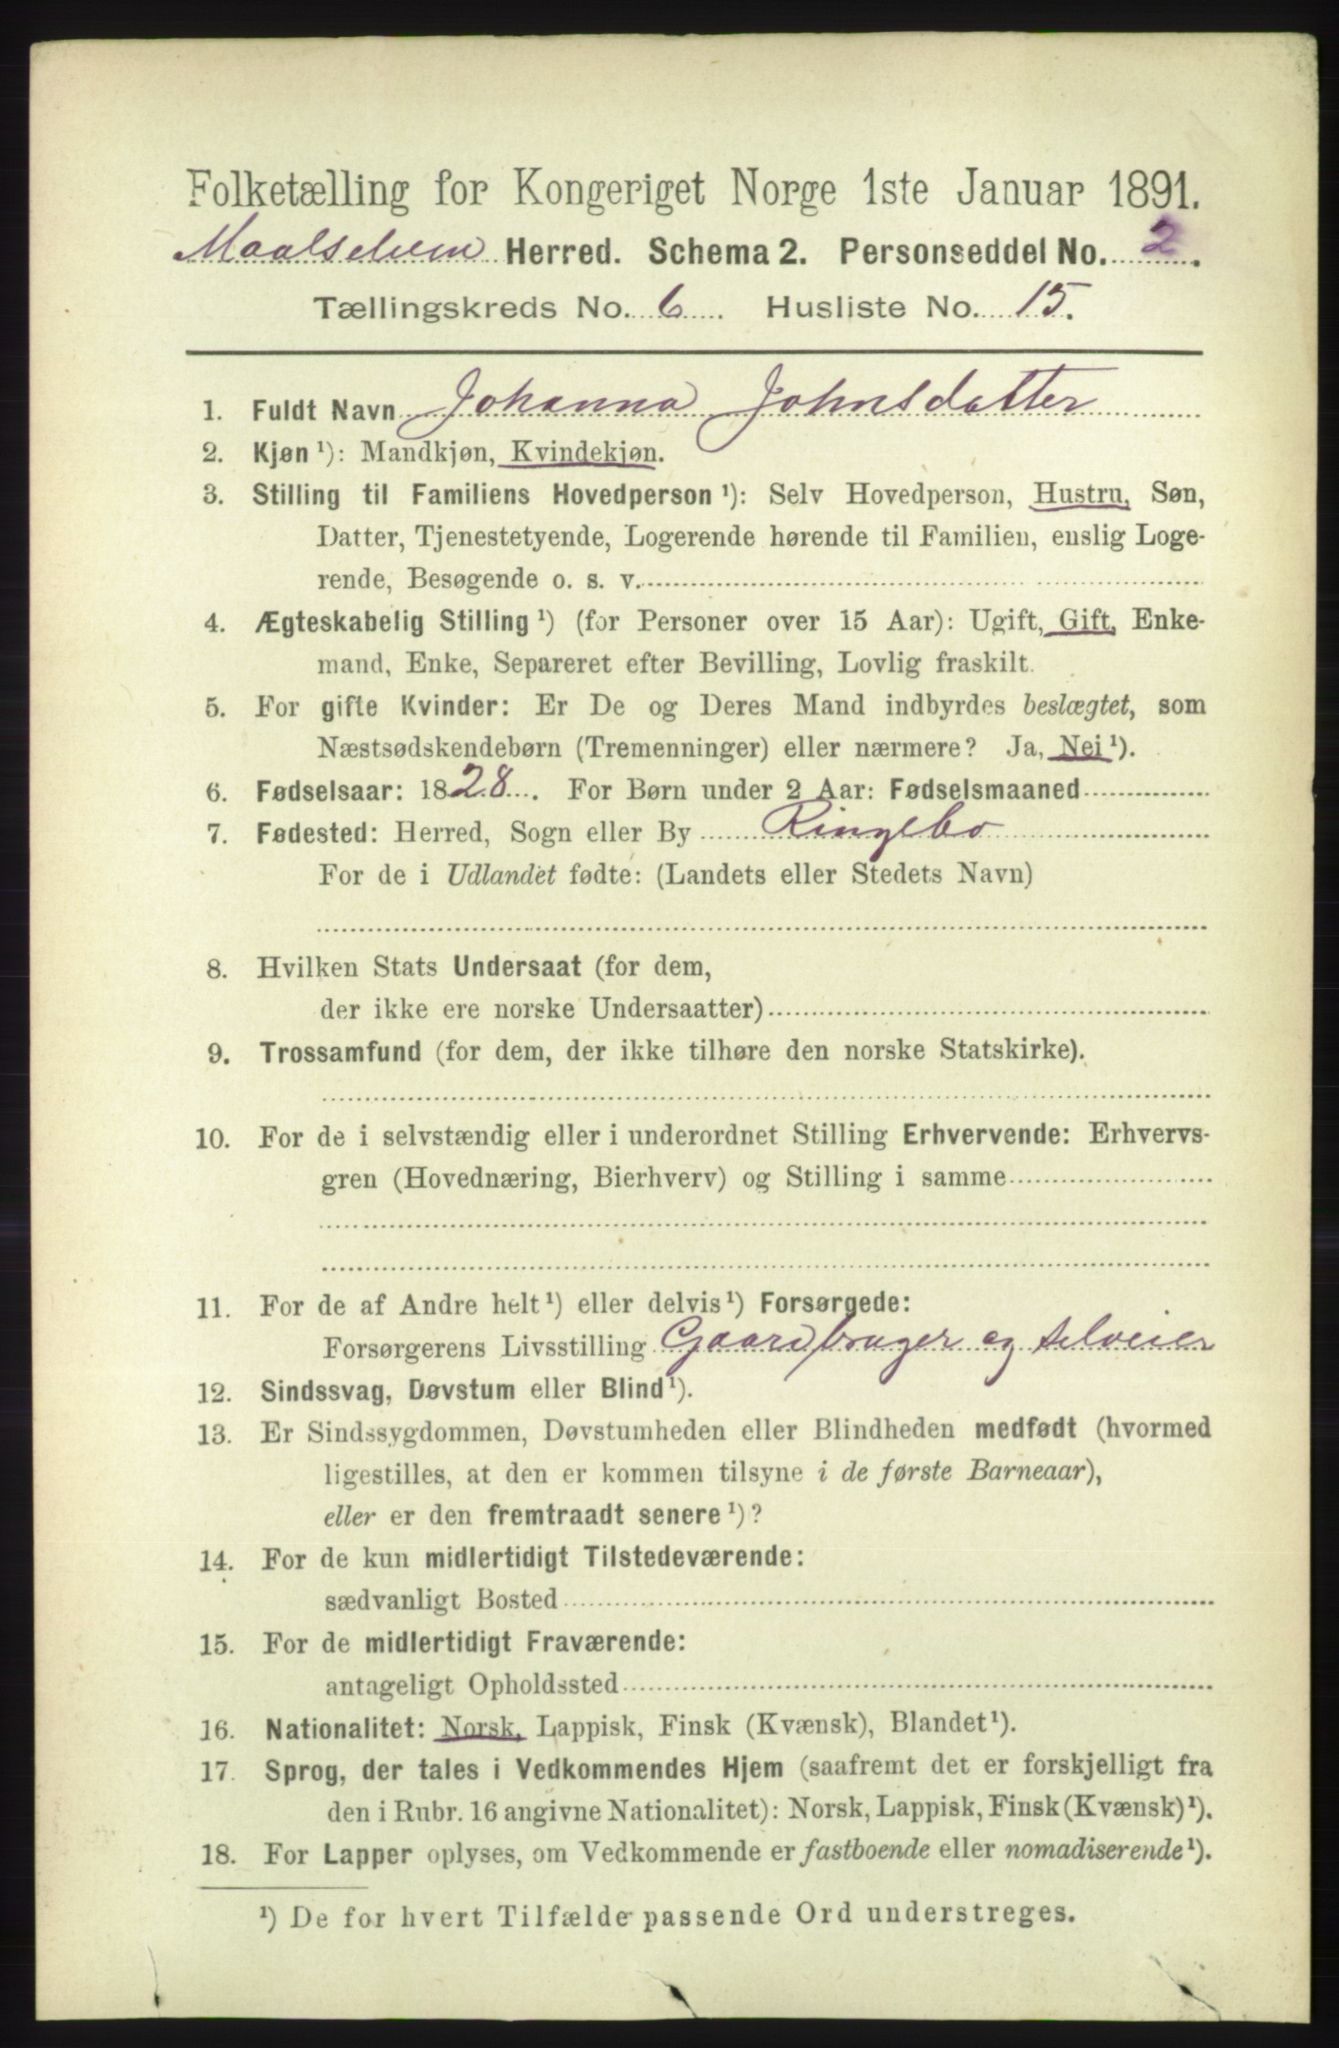 Folketælling for Kongeriget Norge 1ste Januar 1891.
Maalselven Herred. Schema 2. Personseddel No. 2.
Tællingskreds No. 6. Husliste No. 15.
1. Fuldt Navn Johanna Johnsdatter
2. Kjøn ¹): Mandkjøn, Kvindekjøn.
3. Stilling til Familiens Hovedperson ¹): Selv Hovedperson, Hustru, Søn,
Datter, Tjenestetyende, Logerende hørende til Familien, enslig Loge-
rende, Besøgende o. s. v.
4. Ægteskabelig Stilling ¹) (for Personer over 15 Aar): Ugift, Gift, Enke-
mand, Enke, Separeret efter Bevilling, Lovlig fraskilt.
5. For gifte Kvinder: Er De og Deres Mand indbyrdes beslægtet, som
Næstsødskendebørn (Tremenninger) eller nærmere? Ja, Nei ¹).
6. Fødselsaar: 1828. For Børn under 2 Aar: Fødselsmaaned
7. Fødested: Herred, Sogn eller By Ringebo
For de i Udlandet fødte: (Landets eller Stedets Navn)
8. Hvilken Stats Undersaat (for dem,
der ikke ere norske Undersaatter)
9. Trossamfund (for dem, der ikke tilhøre den norske Statskirke).
10. For de i selvstændig eller i underordnet Stilling Erhvervende: Erhvervs-
gren (Hovednæring, Bierhverv) og Stilling i samme
11. For de af Andre helt ¹) eller delvis ¹) Forsørgede:
Forsørgerens Livsstilling Gaardbruger og selveier
12. Sindssvag, Døvstum eller Blind ¹).
13. Er Sindssygdommen, Døvstumheden eller Blindheden medfødt (hvormed
ligestilles, at den er kommen tilsyne i de første Barneaar),
eller er den fremtraadt senere ¹)?
14. For de kun midlertidigt Tilstedeværende:
sædvanligt Bosted
15. For de midlertidigt Fraværende:
antageligt Opholdssted
16. Nationalitet: Norsk, Lappisk, Finsk (Kvænsk), Blandet ¹).
17. Sprog, der tales i Vedkommendes Hjem (saafremt det er forskjelligt fra
den i Rubr. 16 angivne Nationalitet): Norsk, Lappisk, Finsk (Kvænsk) ¹).
18. For Lapper oplyses, om Vedkommende er fastboende eller nomadiserende ¹).
¹) De for hvert Tilfælde passende Ord understreges.